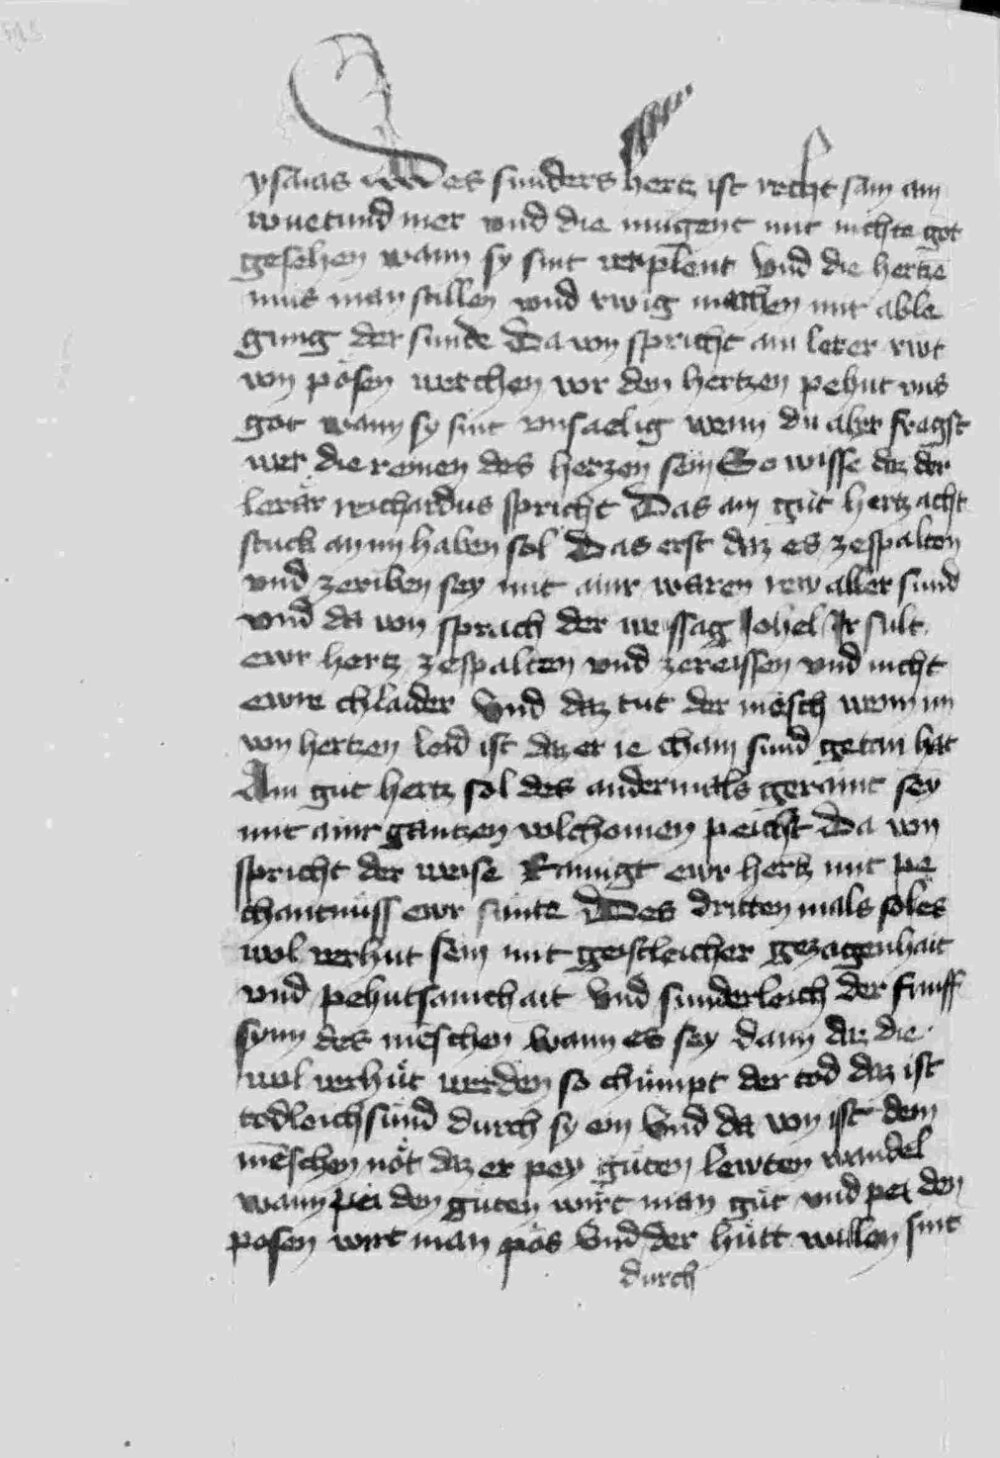 ysaias Des sunders hertz ist recht sam ain
wuetund mer vnd die mugent mit nichte got
gesehen wann sy sint verplent Vnd die hertze
mus man stillen vnd rwig machen mit able
gung der sunde Da von spricht ain lerer
von pösen vor den hertzen pehut vns
got wann sy sint vnsaelig wenn du aber fragst
wer die reinen des herzen sein So wisse daz der
lerär Richardus spricht Das ain gůt hertz acht
stuck an im haben sol Das erst daz es zespalten
vnd zeriben sey mit ainr waren rew aller sund
vnd da von sprach der weissag Johel Ir sült
ewr hertz zespalten vnd zereissen vnd nicht
ewre chlaider Vnd daz tut der mēsch wenn im
von hertzen leid ist daz er ie chain sund getan hat
Ain gut hertz sol des andermals geraint sey
mit ainr gantzen volchomen peicht Da von
spricht der weise Rainigt ewr hertz mit pe
chantnüss ewr sünte Des dritten mals sol es
wol verhut sein mit geistleicher gezogenhait
vnd pehutsamchait Vnd sunderleich der fünff
synn des mēschen wann es sey dann daz die
wol verhüt werden so chümpt der tod daz ist
todleich sünd durch sy ein Vnd da von ist dem
mēschen nöt daz er pey güten lewten wandel
wann pei den guten wirt man gůt vnd pei den
posen wirt man pös Vnd der hütt willen sint
durch